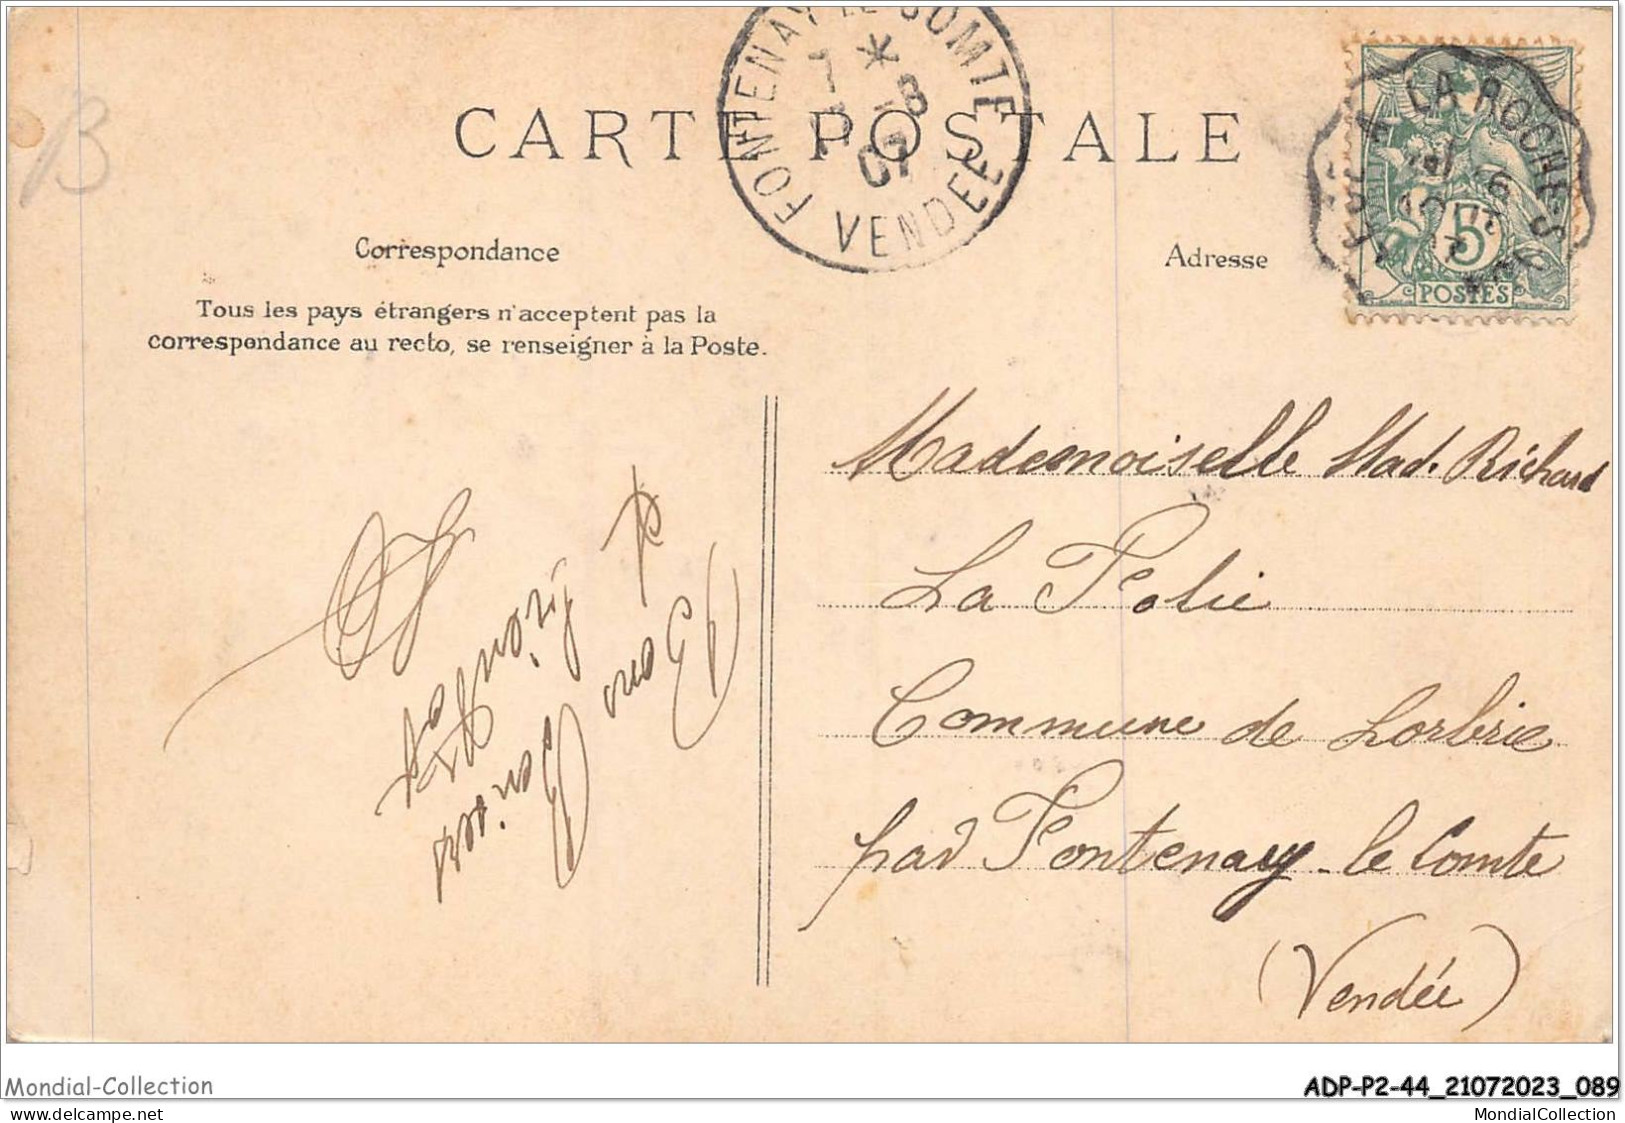 CARTE POSTALE
FONTENAY LE COMTE
7 * 8
07
VENDÉE
LA ROCHE-S
5
POSTES
B
Correspondance
Adresse
Tous les pays étrangers n'acceptent pas la
correspondance au recto, se renseigner à la Poste.
Mademoiselle Mad. Richard
La Folie
Commune de Lorbrie
par Fontenay-le Comte
(Vendée)
Bons
Baisers
Mondial-Collection
ADP-P2-44_21072023_089
MondialCollection